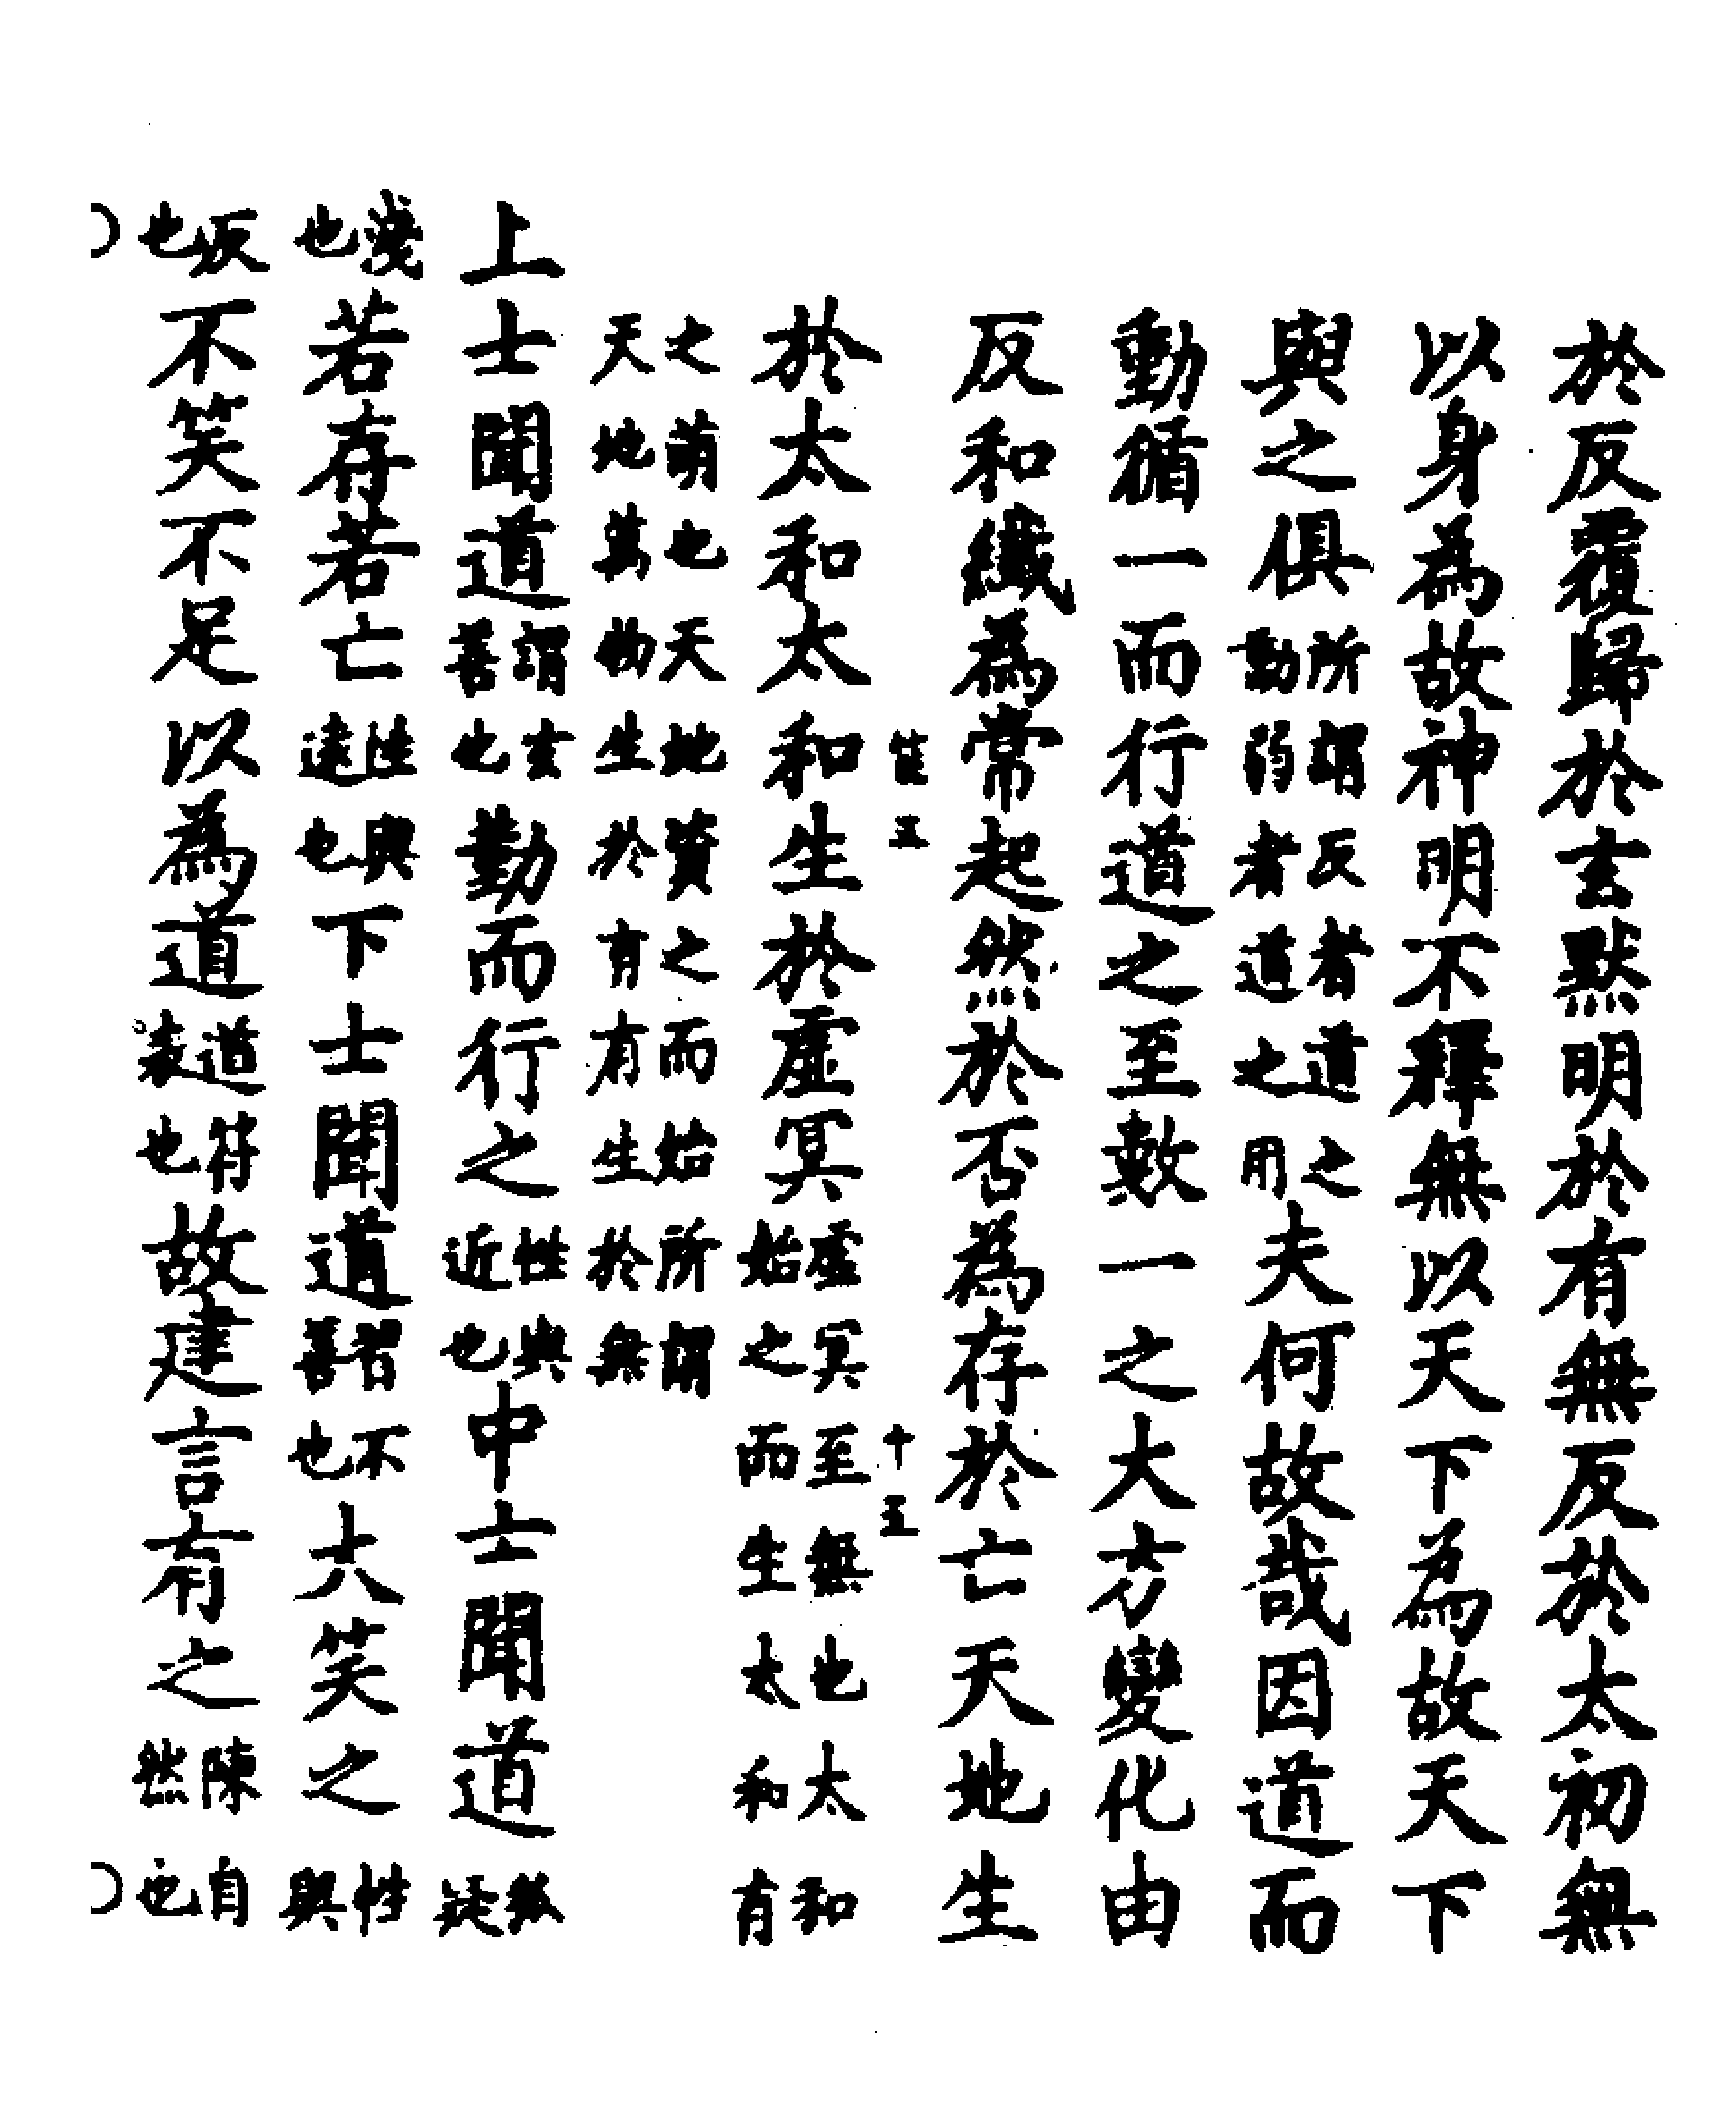 於反覆歸於言默明於有無反於太初無
以身為故神明不釋無以天下為故天下
與之俱所謂反者道之動弱者道之用夫何故哉因道而
動循一而行道之至數一之大方變化由
反和纖為常起然於否為存於亡天地生
五 十五
於太和太和生於虛冥虛冥至無也太和始之而生太和有
之萌也天地資之而始所謂天地萬物生於有有生於無
上士聞道謂玄善也勤而行之性與近也中士聞道狐疑
淺也若存若亡性與遠也下士聞道習不善也大笑之性與
反也不笑不足以為道道符表也故建言有之陳自然也